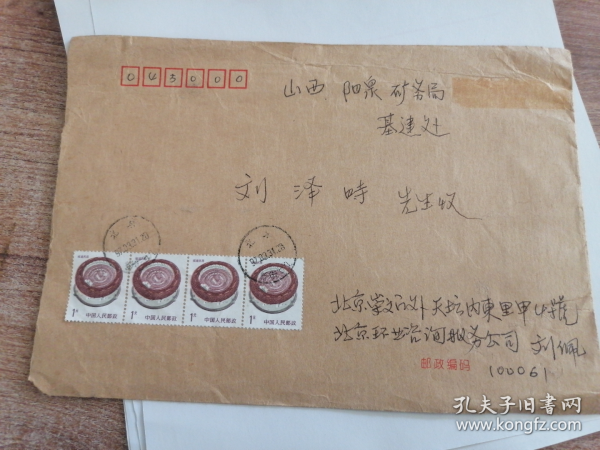 045000
山西 阳泉 矿务局
基建处
刘 泽 时 先生收
1元
中国人民邮政
1元
中国人民邮政
1元
中国人民邮政
1元
中国人民邮政
北京崇文门外天坛内東里甲
北京环业咨询服务公司 刘佩
邮政编码
100061
孔夫子旧书网
www.kongfz.com